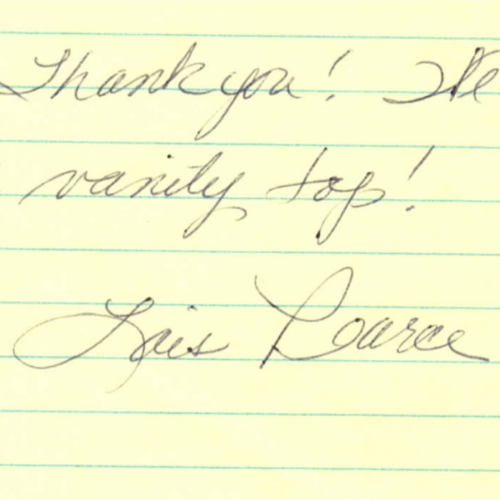 Thank you!
vanity top!
Lois Pearce